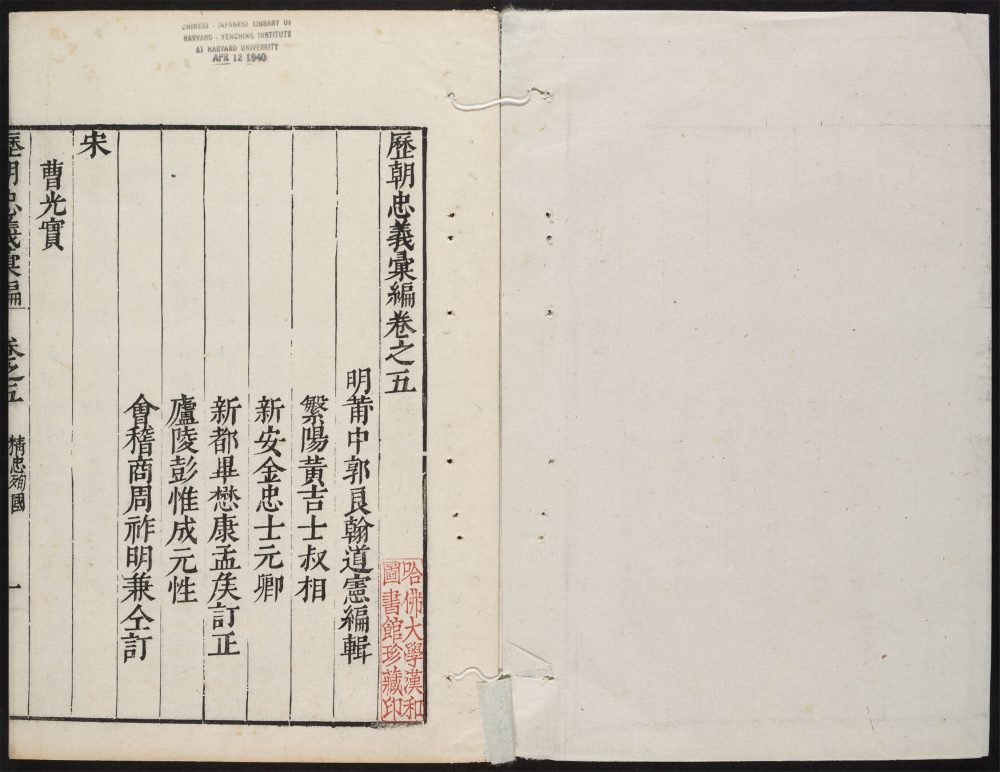 CHINESE - JAPANESE LIBRARY OF
HARVARD - YENCHING INSTITUTE
AT HARVARD UNIVERSITY
APR 12 1940
歷朝忠義彙編卷之五
明莆中郭良翰道憲編輯
繁陽黃吉士叔相
新安金忠士元卿
新都畢懋康孟矦訂正
廬陵彭惟成元性
會稽商周祚明兼仝訂
宋
曹光實
歷朝忠義彙編 卷之五 精忠殉國 一
哈佛大學漢和
圖書館珍藏印